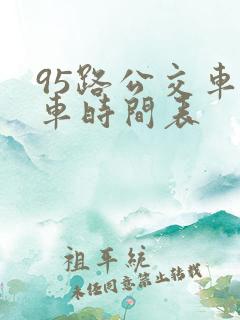 95路公交車
車時間表
祖平統
未任同意禁止转载